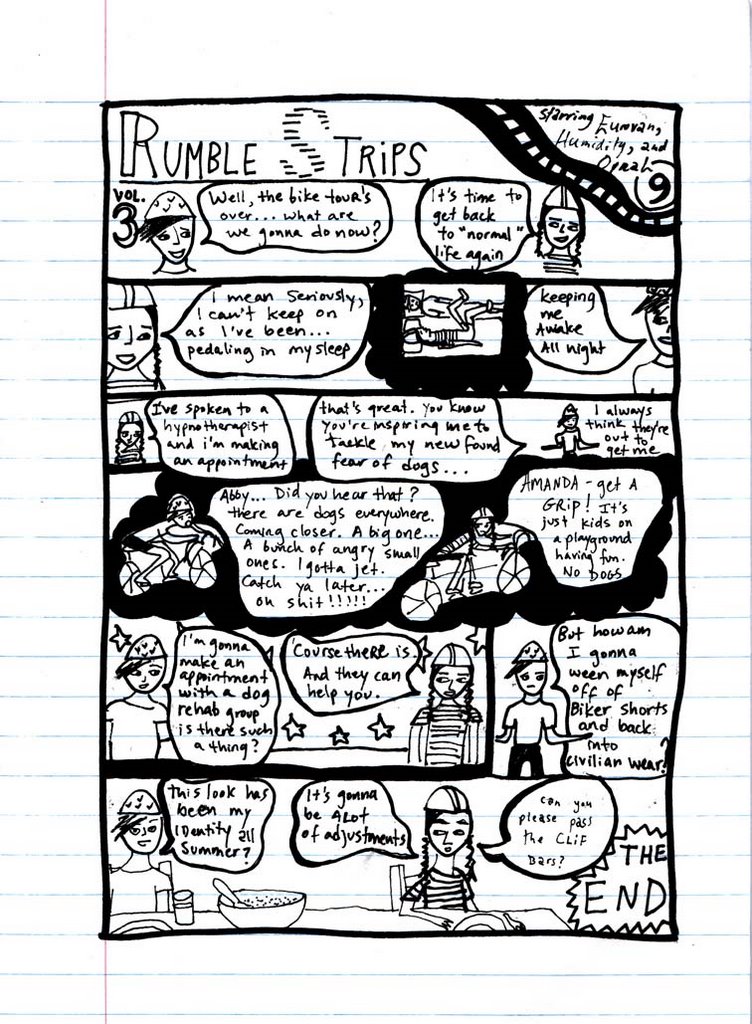 RUMBLE STRIPS
Starring Eunvan,
Humidity, and
Oprah
9
VOL.
3
Well, the bike tour's
over... what are
we gonna do now?
It's time to
get back
to "normal"
life again
I mean Seriously,
I can't keep on
as I've been...
pedaling in my sleep
keeping
me
Awake
All night
I've spoken to a
hypnotherapist
and i'm making
an appointment
that's great. you know
you're inspiring me to
tackle my new found
fear of dogs...
I always
think they're
out to
get me
Abby... Did you hear that?
there are dogs everywhere.
Coming closer. A big one...
A bunch of angry small
ones. I gotta jet.
Catch ya later...
oh shit!!!!!
AMANDA - get A
GRip! It's
just kids on
a playground
having fun.
NO DOGS
I'm gonna
make an
appointment
with a dog
rehab group
is there such
a thing?
Course there is.
And they can
help you.
But how am
I gonna
ween myself
off of
Biker shorts
and back
into
civilian wear?
This look has
been my
identity all
Summer?
It's gonna
be A Lot
of adjustments
can you
please pass
the CLiF
Bars?
THE
END